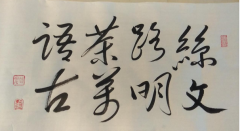 絲路茶語
文明萬古